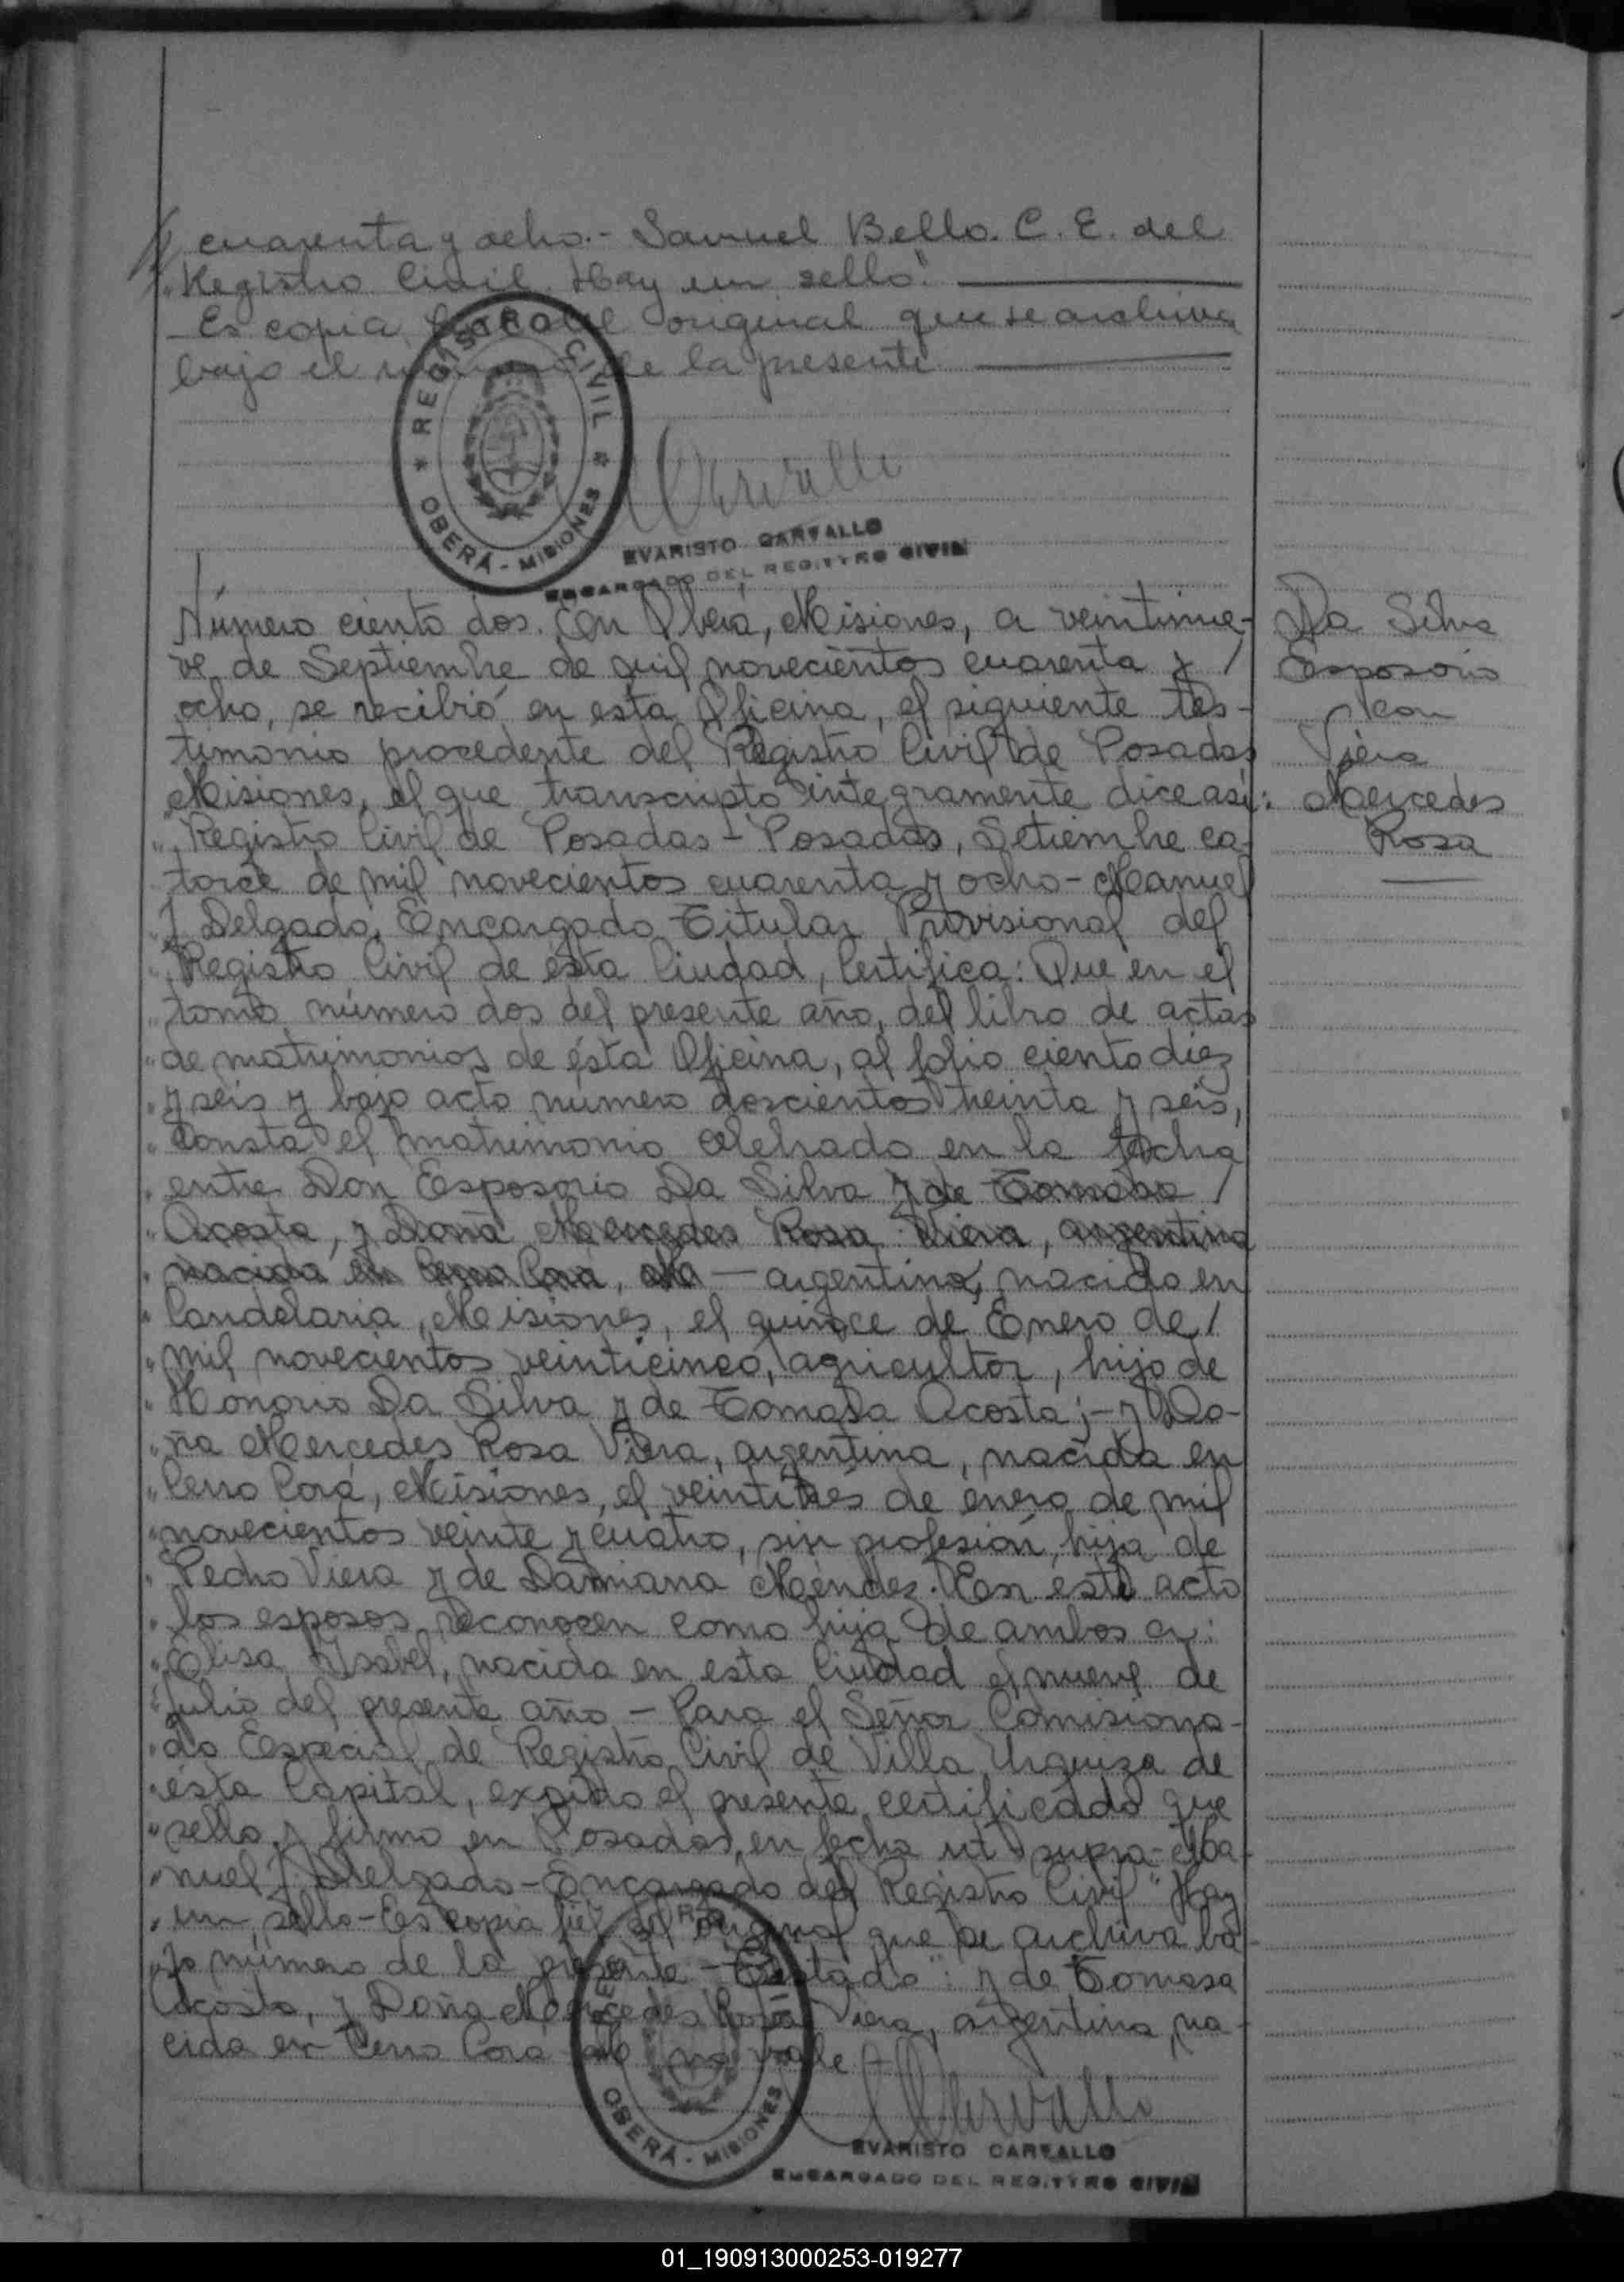 cuarenta y ocho.- Samuel Bello. C. E. del
"Registro Civil. Hay un sello".
Es copia del original que se archiva
bajo el de la presente
REGISTRO CIVIL
OBERÁ - MISIONES
EVARISTO CARVALLO
ENCARGADO DEL REGISTRO CIVIL
Número ciento dos. En Oberá, Misiones, a veintinue-
ve de Septiembre de mil novecientos cuarenta y /
ocho, se recibió en esta Oficina, el siguiente tes-
timonio procedente del Registro Civil de Posadas
Misiones, el que transcripto integramente dice así:
"Registro Civil de Posadas - Posadas, Setiembre ca-
torce de mil novecientos cuarenta y ocho - Manuel
"J Delgado, Encargado Titular Provisional del
"Registro Civil de ésta Ciudad, Certifica: Que en el
"tomo número dos del presente año, del libro de actas
"de matrimonios de ésta Oficina, al folio ciento diez
"y seis y bajo acto número doscientos treinta y seis,
"Consta el matrimonio celebrado en la fecha
"entre Don Esposorio Da Silva y de Tomasa /
"Acosta, y Doña Mercedes Rosa Viera, argentina
"nacida en Cerro Cora, Mi — argentino, nacido en
"Candelaria, Misiones, el quince de Enero de /
"mil novecientos veinticinco, agricultor, hijo de
"Honorio Da Silva y de Tomasa Acosta; - y Do-
"ña Mercedes Rosa Viera, argentina, nacida en
"Cerro Corá, Misiones, el veintitrés de enero de mil
"novecientos veinte y cuatro, sin profesión, hija de
"Pedro Viera y de Damiana Méndez. En este acto
"los esposos reconocen como hija de ambos a:
"Elisa Ysabel, nacida en esta Ciudad el nueve de
"Julio del presente año - Para el Señor Comisiona-
"do Especial de Registro Civil de Villa Urquiza de
"ésta Capital, expido el presente certificado que
"sello y firmo en Posadas, en fecha ut supra - Ma-
"nuel J Delgado - Encargado del Registro Civil" Hay
"un sello - Es copia fiel del original que se archiva ba-
"jo número de la presente - "Testado": y de Tomasa
Acosta, y Doña Mercedes Rosa Viera, argentina, na-
cida en Cerro Cora Mi no vale -
OBERÁ - MISIONES
EVARISTO CARVALLO
ENCARGADO DEL REGISTRO CIVIL
Da Silva
Esposorio
con
Viera
Mercedes
Rosa
01_190913000253-019277